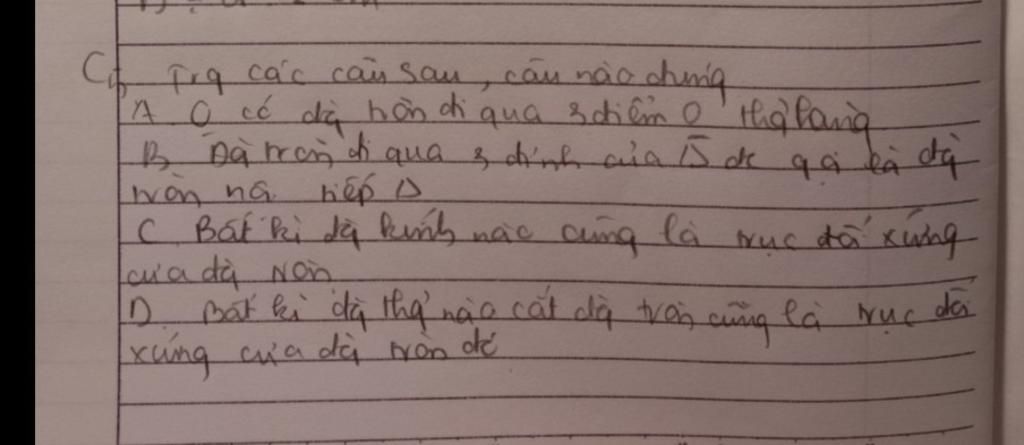 C₁, Trg các câu sau, câu nào đúng
A. O có đg tròn đi qua 3 điểm O thg hàng
B. Đg tròn đi qua 3 đỉnh của Δ đc gọi là đg
tròn nội tiếp Δ
C. Bất kì đg kính nào cũng là trục đối xứng
của đg tròn
D. Bất kì đg thg nào cắt đg tròn cũng là trục đối
xứng của đg tròn đó